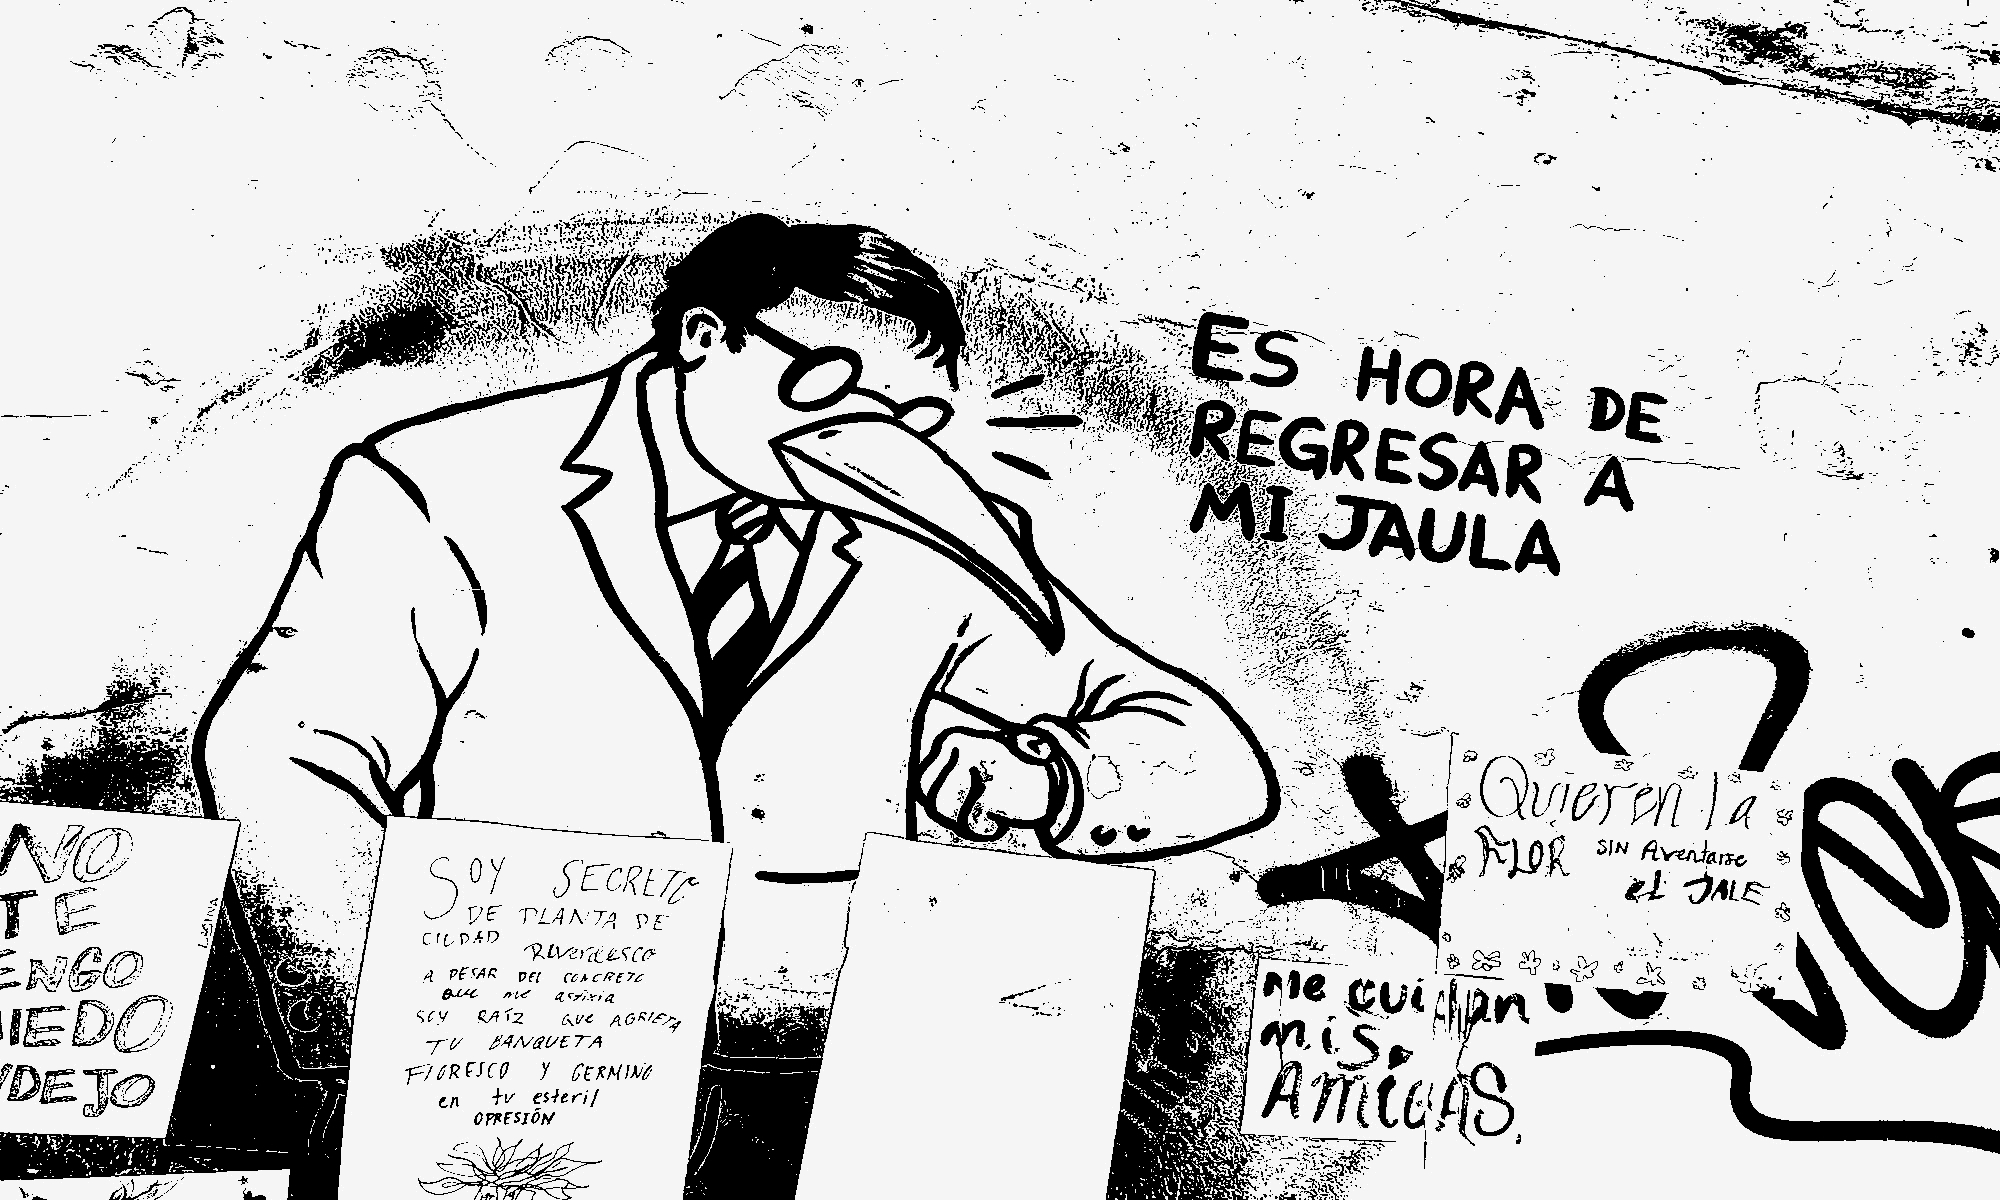 ES HORA DE
REGRESAR A
MI JAULA
NO
TE
ENGO
IEDO
DEJO
SOY SECRETO
DE PLANTA DE
CIUDAD Reverdesco
A PESAR DEL CONCRETO
QUE me asfixia
SOY RAÍZ QUE AGRIETA
TU BANQUETA
FLORESCO Y GERMINO
en tu esteril
OPRESIÓN
Quieren la
FLOR SIN Aventarse
el JALE
Me cuidan
mis
AMIGAS.